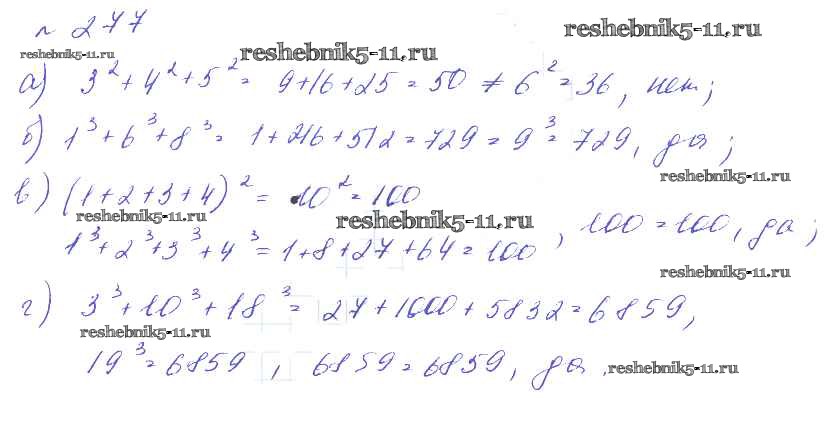 № 277
reshebnik5-11.ru reshebnik5-11.ru reshebnik5-11.ru
а) 3² + 4² + 5² = 9+16+25 = 50 ≠ 6² = 36, нет;
б) 1³ + 6³ + 8³ = 1 + 216 + 512 = 729 = 9³ = 729, да;
reshebnik5-11.ru
в) (1+2+3+4)² = 10² = 100
reshebnik5-11.ru reshebnik5-11.ru
1³ + 2³ + 3³ + 4³ = 1+8+27+64 = 100, 100 = 100, да;
reshebnik5-11.ru
г) 3³ + 10³ + 18³ = 27 + 1000 + 5832 = 6859,
reshebnik5-11.ru
19³ = 6859, 6859 = 6859, да. reshebnik5-11.ru